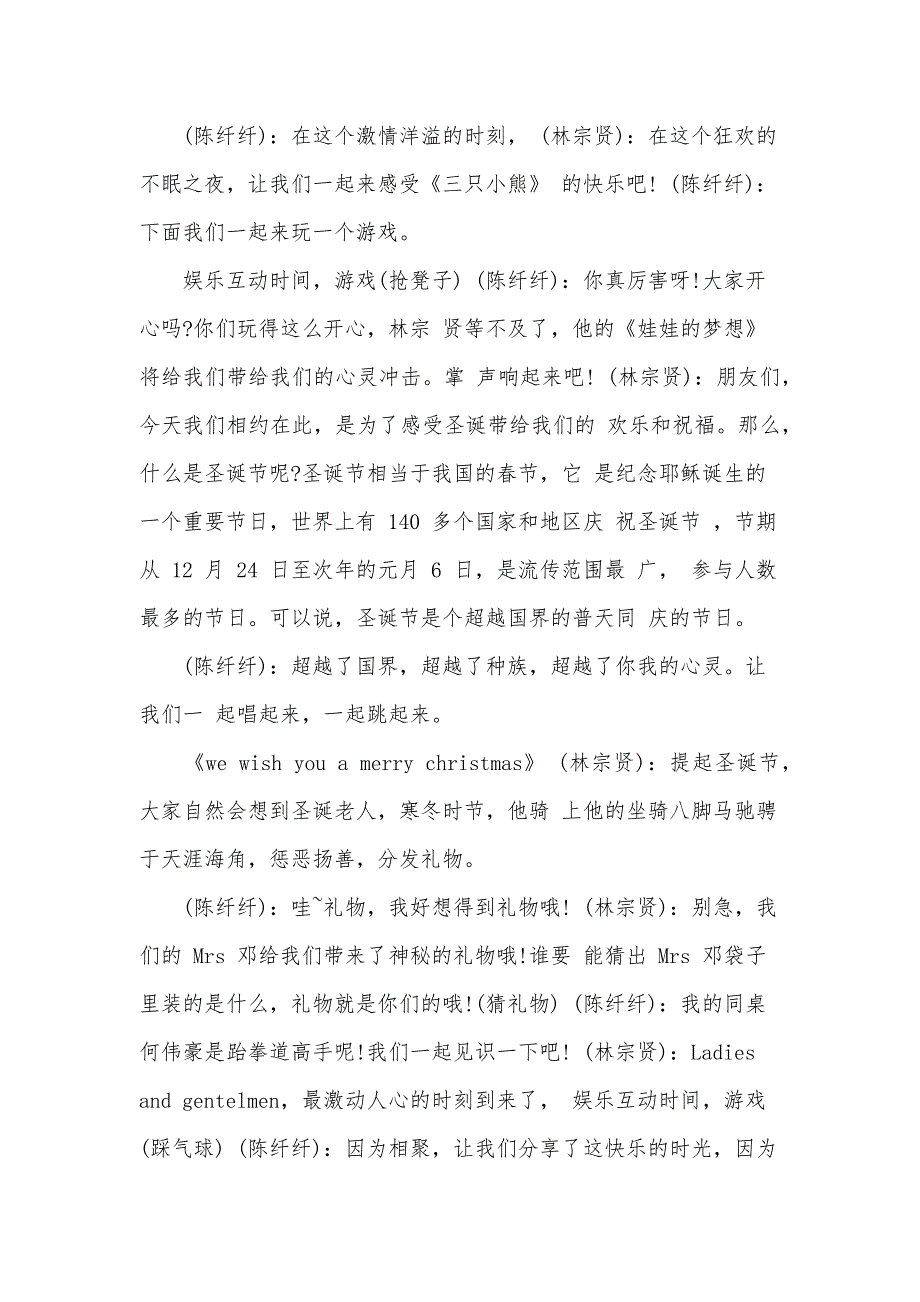 (陈纤纤)：在这个激情洋溢的时刻， (林宗贤)：在这个狂欢的
不眠之夜，让我们一起来感受《三只小熊》 的快乐吧! (陈纤纤)：
下面我们一起来玩一个游戏。
娱乐互动时间，游戏(抢凳子) (陈纤纤)：你真厉害呀!大家开
心吗?你们玩得这么开心，林宗 贤等不及了，他的《娃娃的梦想》
将给我们带给我们的心灵冲击。掌 声响起来吧! (林宗贤)：朋友们，
今天我们相约在此，是为了感受圣诞带给我们的 欢乐和祝福。那么，
什么是圣诞节呢?圣诞节相当于我国的春节，它 是纪念耶稣诞生的
一个重要节日，世界上有 140 多个国家和地区庆 祝圣诞节 ，节期
从 12 月 24 日至次年的元月 6 日，是流传范围最 广， 参与人数
最多的节日。可以说，圣诞节是个超越国界的普天同 庆的节日。
(陈纤纤)：超越了国界，超越了种族，超越了你我的心灵。让
我们一 起唱起来，一起跳起来。
《we wish you a merry christmas》 (林宗贤)：提起圣诞节，
大家自然会想到圣诞老人，寒冬时节，他骑 上他的坐骑八脚马驰骋
于天涯海角，惩恶扬善，分发礼物。
(陈纤纤)：哇~礼物，我好想得到礼物哦! (林宗贤)：别急，我
们的 Mrs 邓给我们带来了神秘的礼物哦!谁要 能猜出 Mrs 邓袋子
里装的是什么，礼物就是你们的哦!(猜礼物) (陈纤纤)：我的同桌
何伟豪是跆拳道高手呢!我们一起见识一下吧! (林宗贤)：Ladies
and gentelmen，最激动人心的时刻到来了， 娱乐互动时间，游戏
(踩气球) (陈纤纤)：因为相聚，让我们分享了这快乐的时光，因为